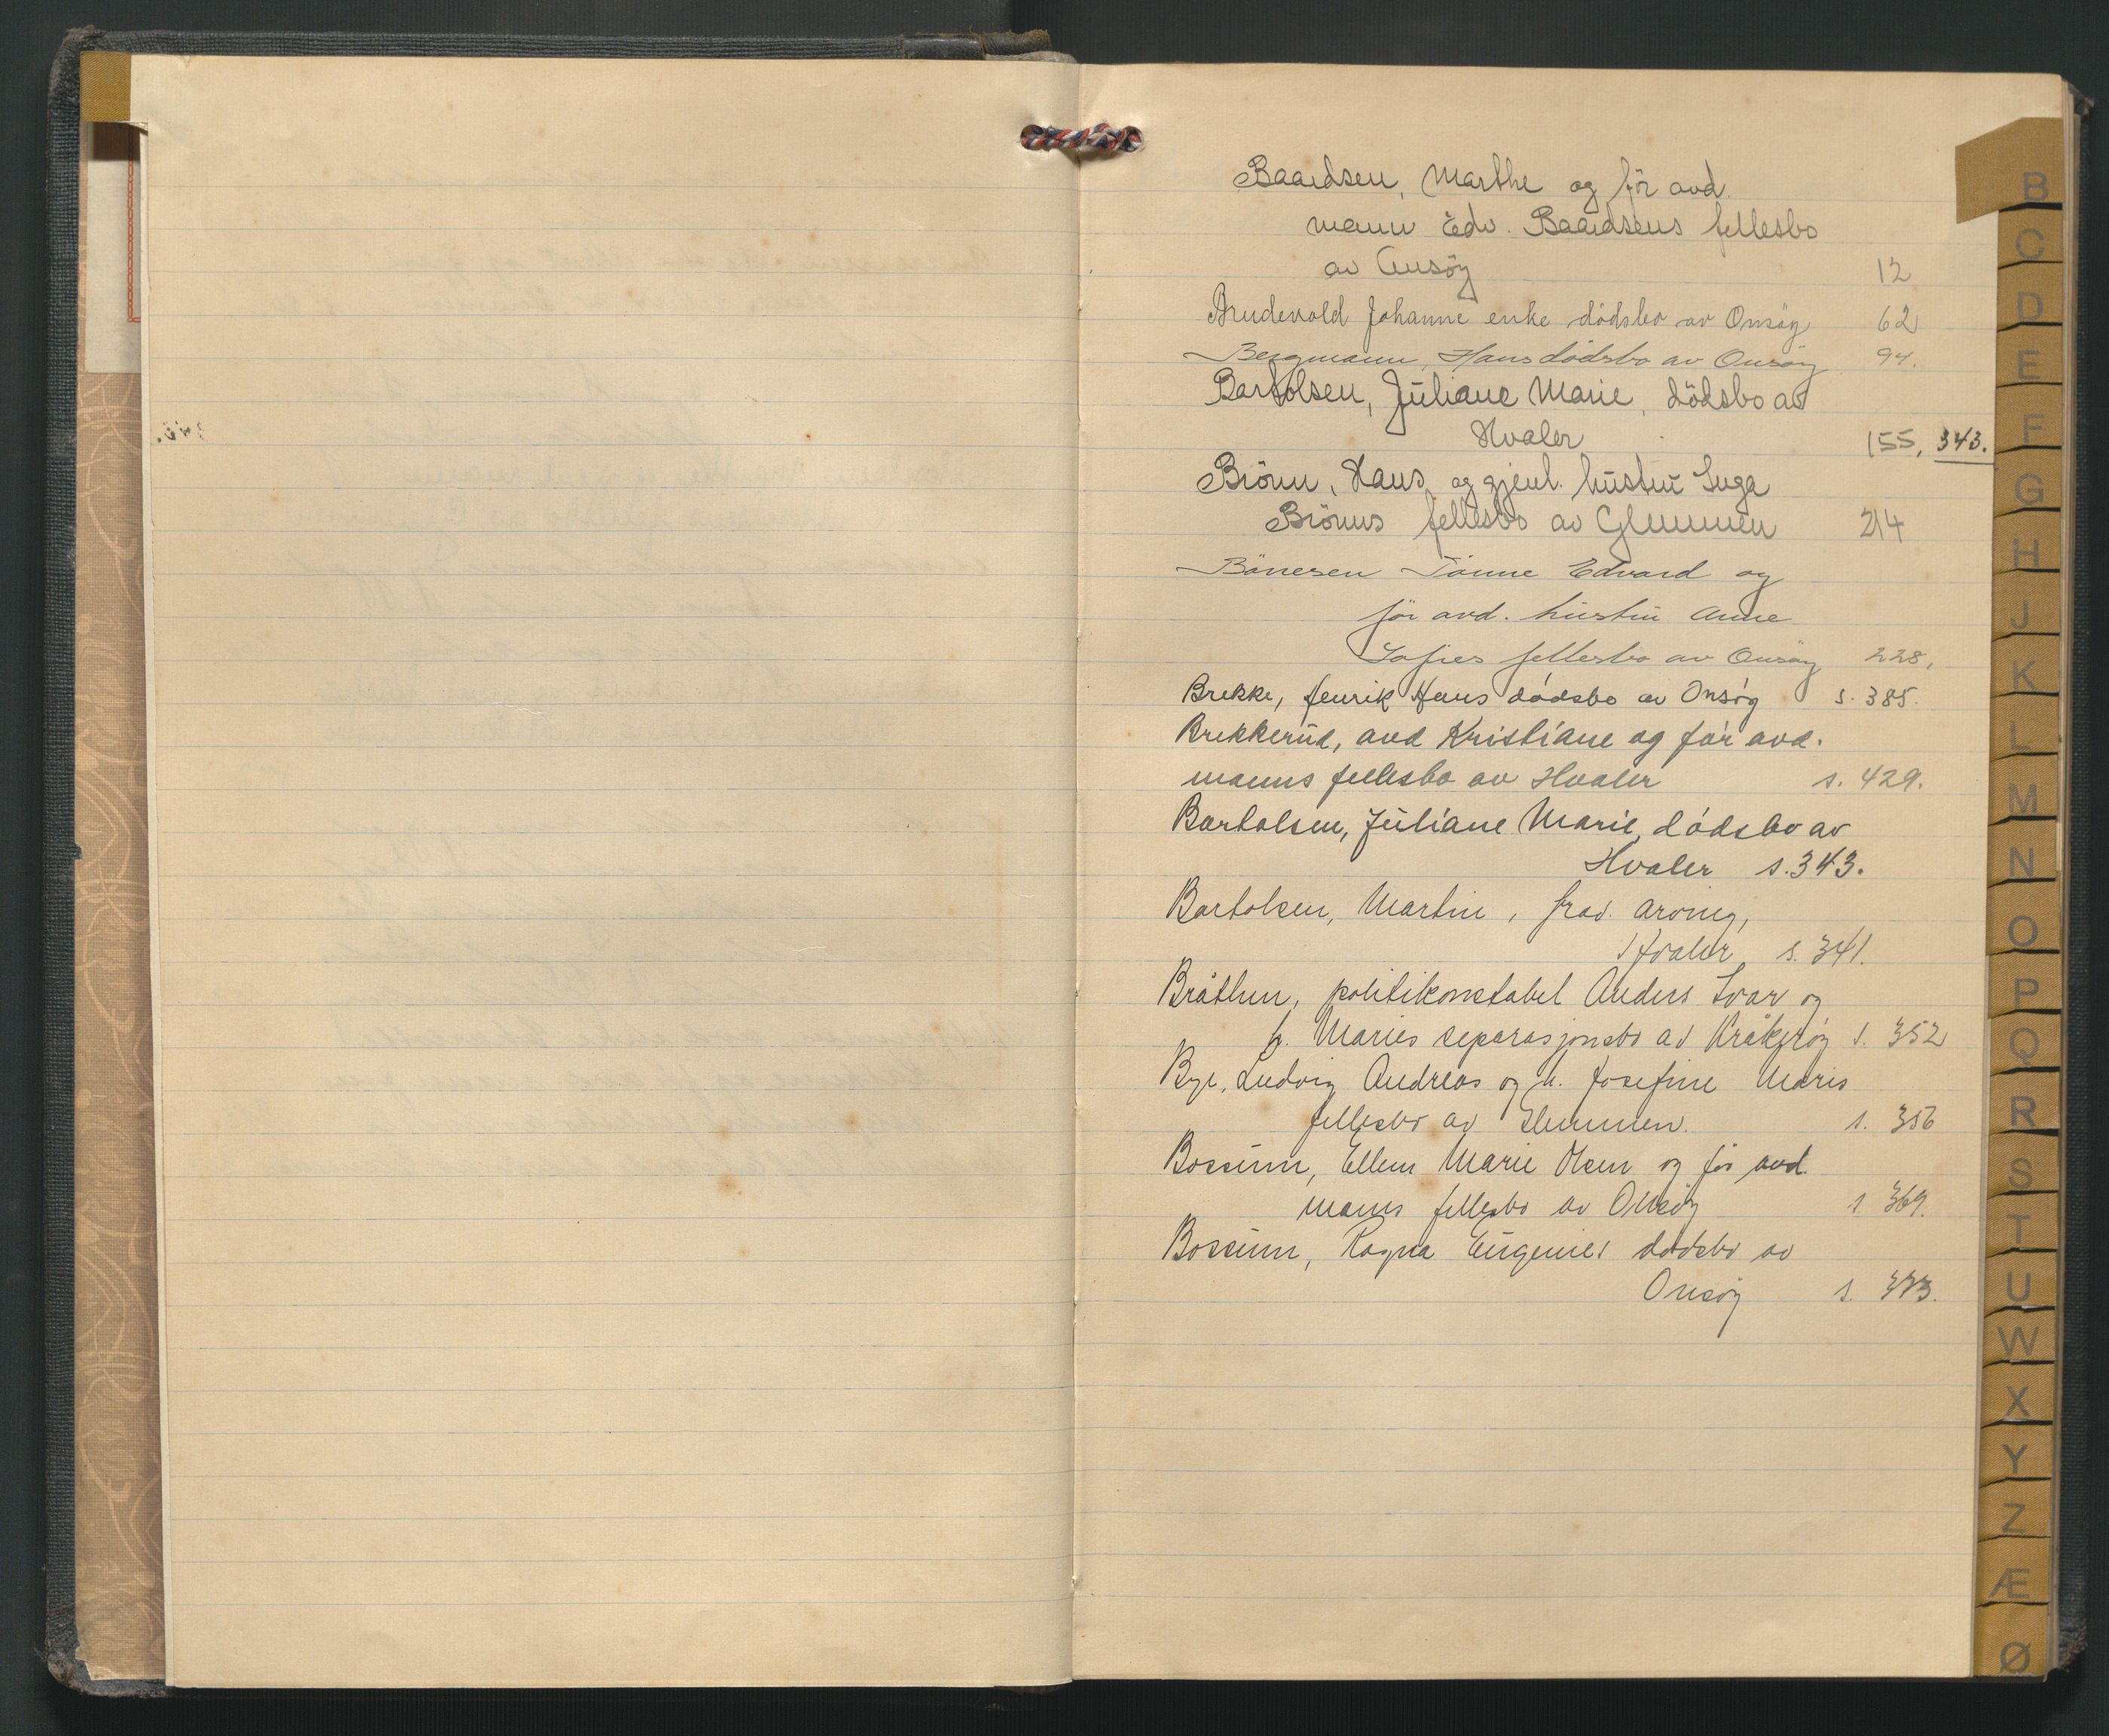 Baardsen, Marthe og før avd.
mann Edv. Baardsens fellesbo
av Onsöy 12
Brudevold Johanne enke dödsbo av Onsøy 62
Bergmann, Hans dödsbo av Onsöy 94.
Bartolsen, Juliane Marie, dödsbo av
Hvaler 155, 343.
Brönn, Hans og gjenl. hustru Inga
Brönns fellesbo av Glemmen 214
Bönesen Tönne Edvard og
för avd. hustru Anne
Sofies fellesbo av Onsöy 228,
Brekke, Henrik Hans dødsbo av Onsøy s. 385.
Brekkerud, avd Kristiane og før avd.
manns fellesbo av Hvaler s. 429.
Bartolsen, Juliane Marie, dødsbo av
Hvaler s. 343.
Bartolsen, Martin, frav. arving,
Hvaler s. 341.
Bråthen, politikonstabel Anders Ivar og
h. Maries separasjonsbo av Kråkerøy s. 352
Bye, Ludvig Andreas og h. Josefine Maris
fellesbo av Glemmen. s. 356
Bossum, Ellen Marie Olsen og før avd.
manns fellesbo av Onsøy s. 369.
Bossum, Ragna Eugenies dødsbo av
Onsøy s. 373.
B
C
D
E
F
G
H
J
K
L
M
N
O
P
Q
R
S
T
U
W
X
Y
Z
Æ
Ø